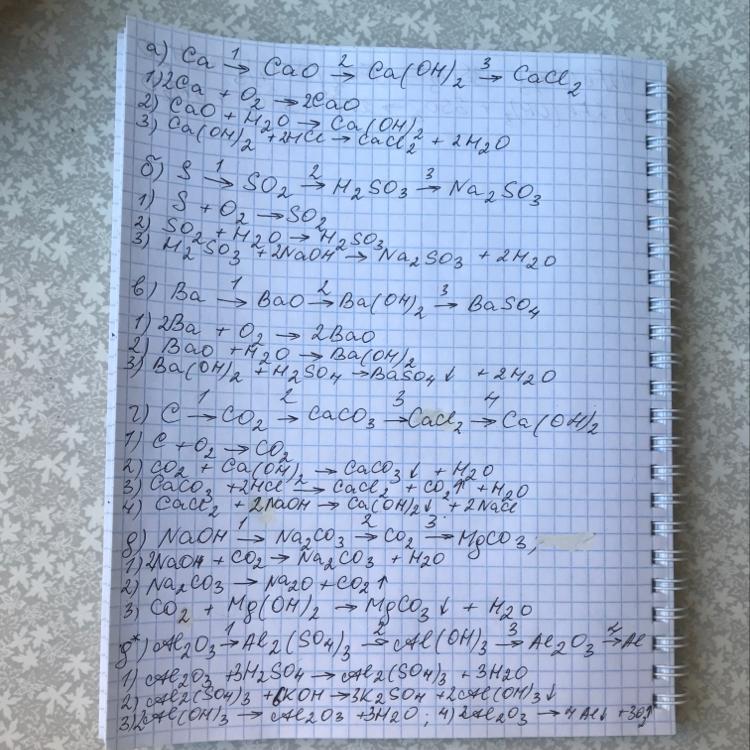 а) Ca 1→ CaO 2→ Ca(OH)₂ 3→ CaCl₂
1) 2Ca + O₂ → 2CaO
2) CaO + H₂O → Ca(OH)₂
3) Ca(OH)₂ + 2HCl → CaCl₂ + 2H₂O
б) S 1→ SO₂ 2→ H₂SO₃ 3→ Na₂SO₃
1) S + O₂ → SO₂
2) SO₂ + H₂O → H₂SO₃
3) H₂SO₃ + 2NaOH → Na₂SO₃ + 2H₂O
в) Ba 1→ BaO 2→ Ba(OH)₂ 3→ BaSO₄
1) 2Ba + O₂ → 2BaO
2) BaO + H₂O → Ba(OH)₂
3) Ba(OH)₂ + H₂SO₄ → BaSO₄↓ + 2H₂O
г) C 1→ CO₂ 2→ CaCO₃ 3→ CaCl₂ 4→ Ca(OH)₂
1) C + O₂ → CO₂
2) CO₂ + Ca(OH)₂ → CaCO₃↓ + H₂O
3) CaCO₃ + 2HCl → CaCl₂ + CO₂↑ + H₂O
4) CaCl₂ + 2NaOH → Ca(OH)₂↓ + 2NaCl
д) NaOH 1→ Na₂CO₃ 2→ CO₂ 3→ MgCO₃,
1) 2NaOH + CO₂ → Na₂CO₃ + H₂O
2) Na₂CO₃ → Na₂O + CO₂↑
3) CO₂ + Mg(OH)₂ → MgCO₃↓ + H₂O
д*) Al₂O₃ 1→ Al₂(SO₄)₃ 2→ Al(OH)₃ 3→ Al₂O₃ 4→ Al
1) Al₂O₃ + 3H₂SO₄ → Al₂(SO₄)₃ + 3H₂O
2) Al₂(SO₄)₃ + 6KOH → 3K₂SO₄ + 2Al(OH)₃↓
3) 2Al(OH)₃ → Al₂O₃ + 3H₂O; 4) 2Al₂O₃ → 4Al↓ + 3O₂↑